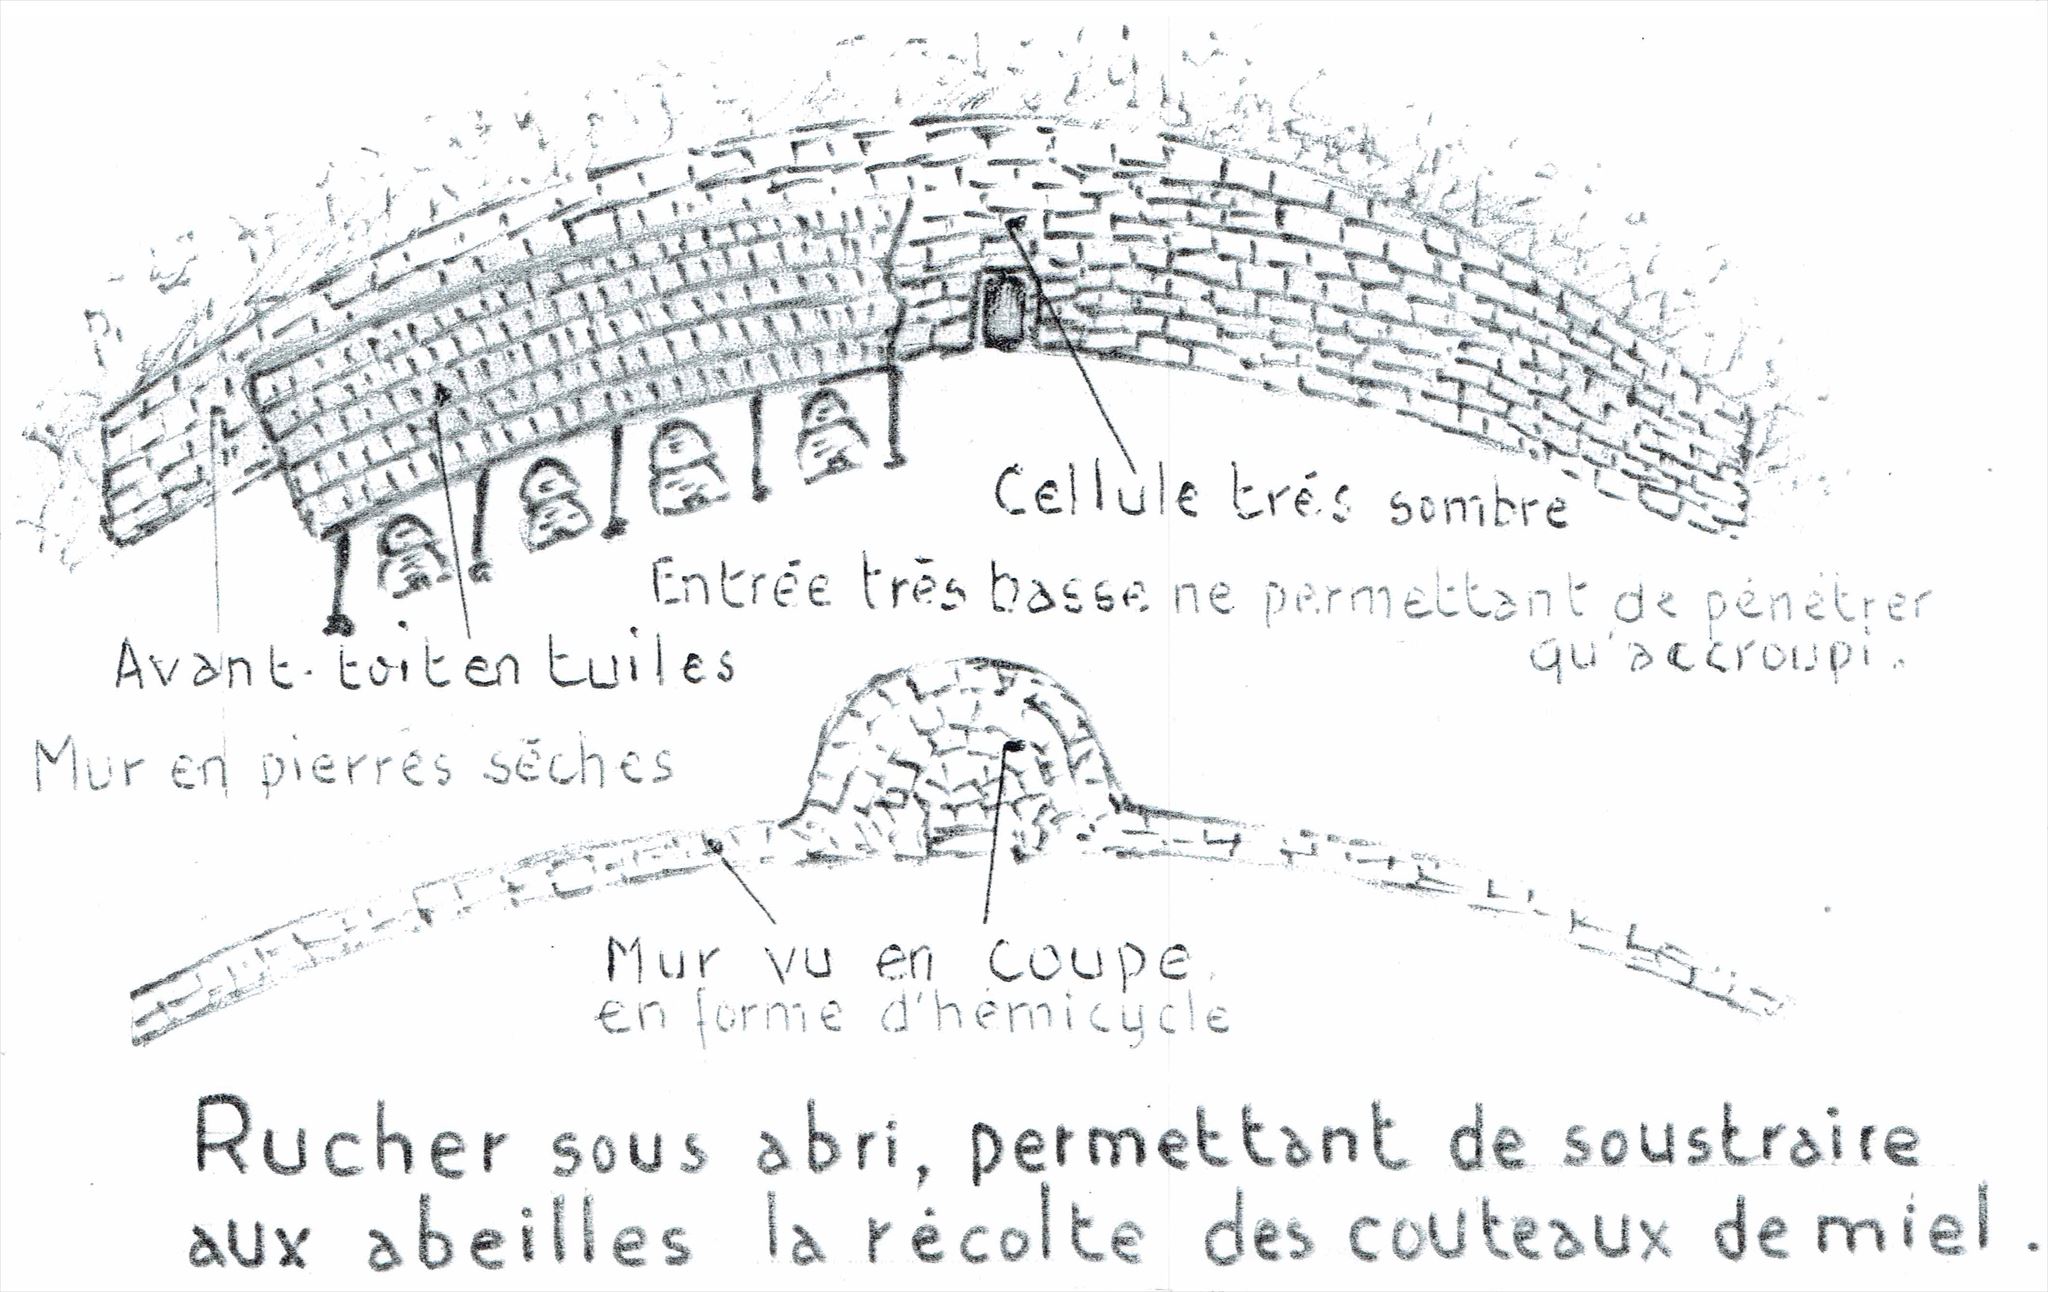 Cellule trés sombre
Entrée trés basse ne permettant de pénétrer
qu'accroupi.
Avant-toit en tuiles
Mur en pierrés séches
Mur vu en coupe
en forme d'hémicycle
Rucher sous abri, permettant de soustraire
aux abeilles la récolte des couteaux de miel.